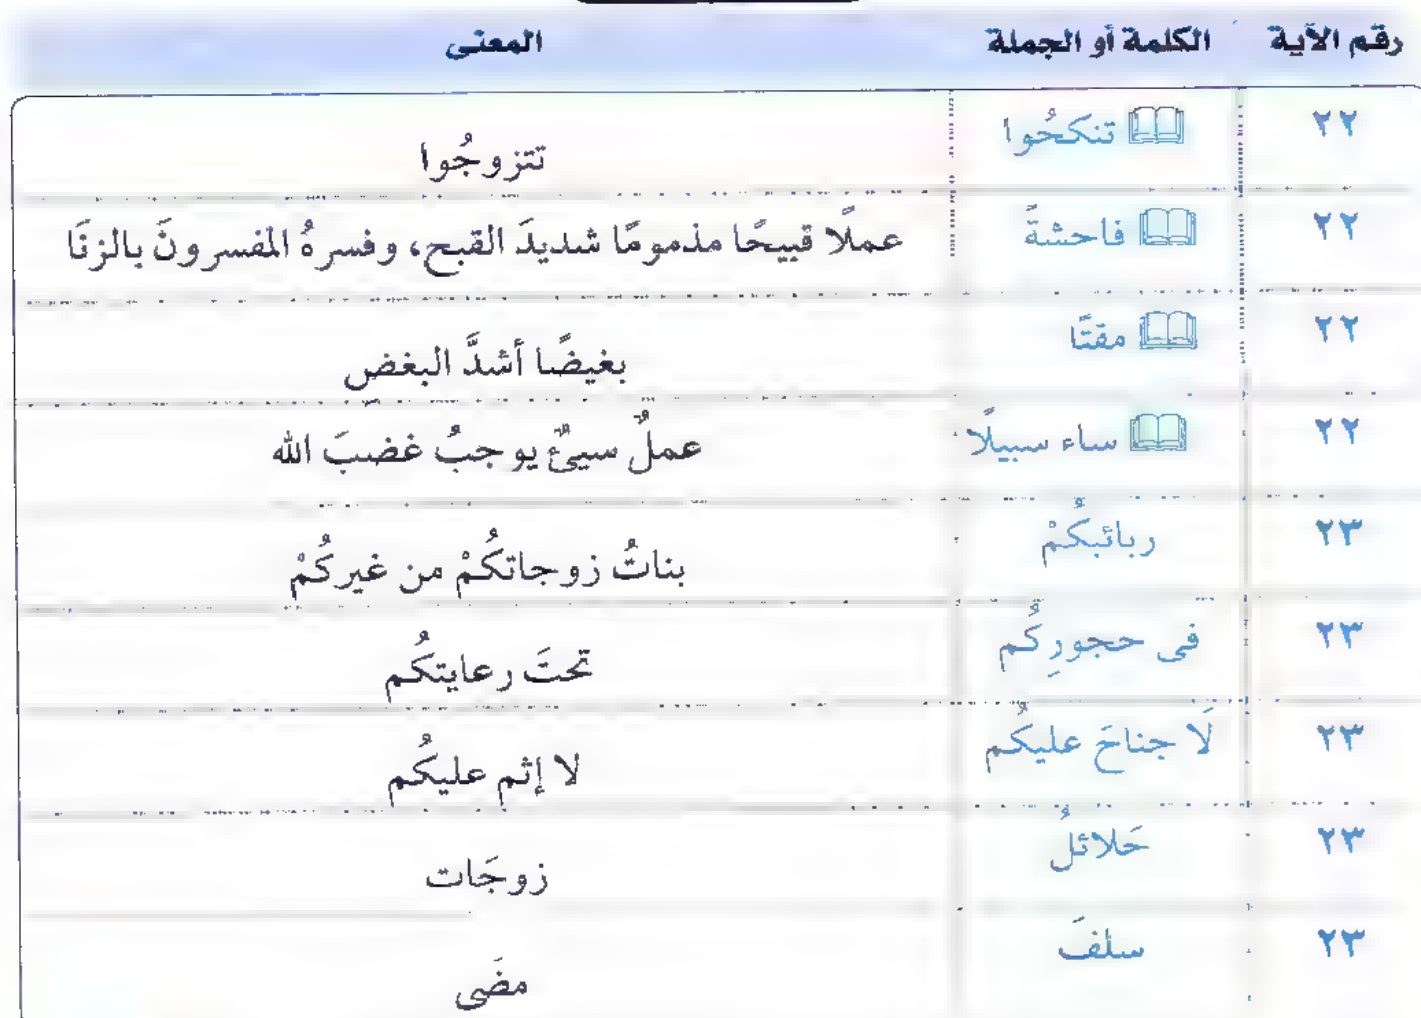 رقم الآية الكلمة أو الجملة المعنى
٢٢ تنكحُوا تتزوجُوا
٢٢ فاحشةً عملًا قبيحًا مذمومًا شديدَ القبح، وفسرهُ المفسرونَ بالزنَا
٢٢ مقتًا بغيضًا أشدَّ البغض
٢٢ ساء سبيلًا عملٌ سيئٌ يوجبُ غضبَ الله
٢٣ ربائبكُمْ بناتُ زوجاتكُمْ من غيركُمْ
٢٣ فى حجورِكُم تحتَ رعايتكُم
٢٣ لَا جناحَ عليكُم لا إثم عليكُم
٢٣ حَلائلُ زوجَات
٢٣ سلفَ مضَى